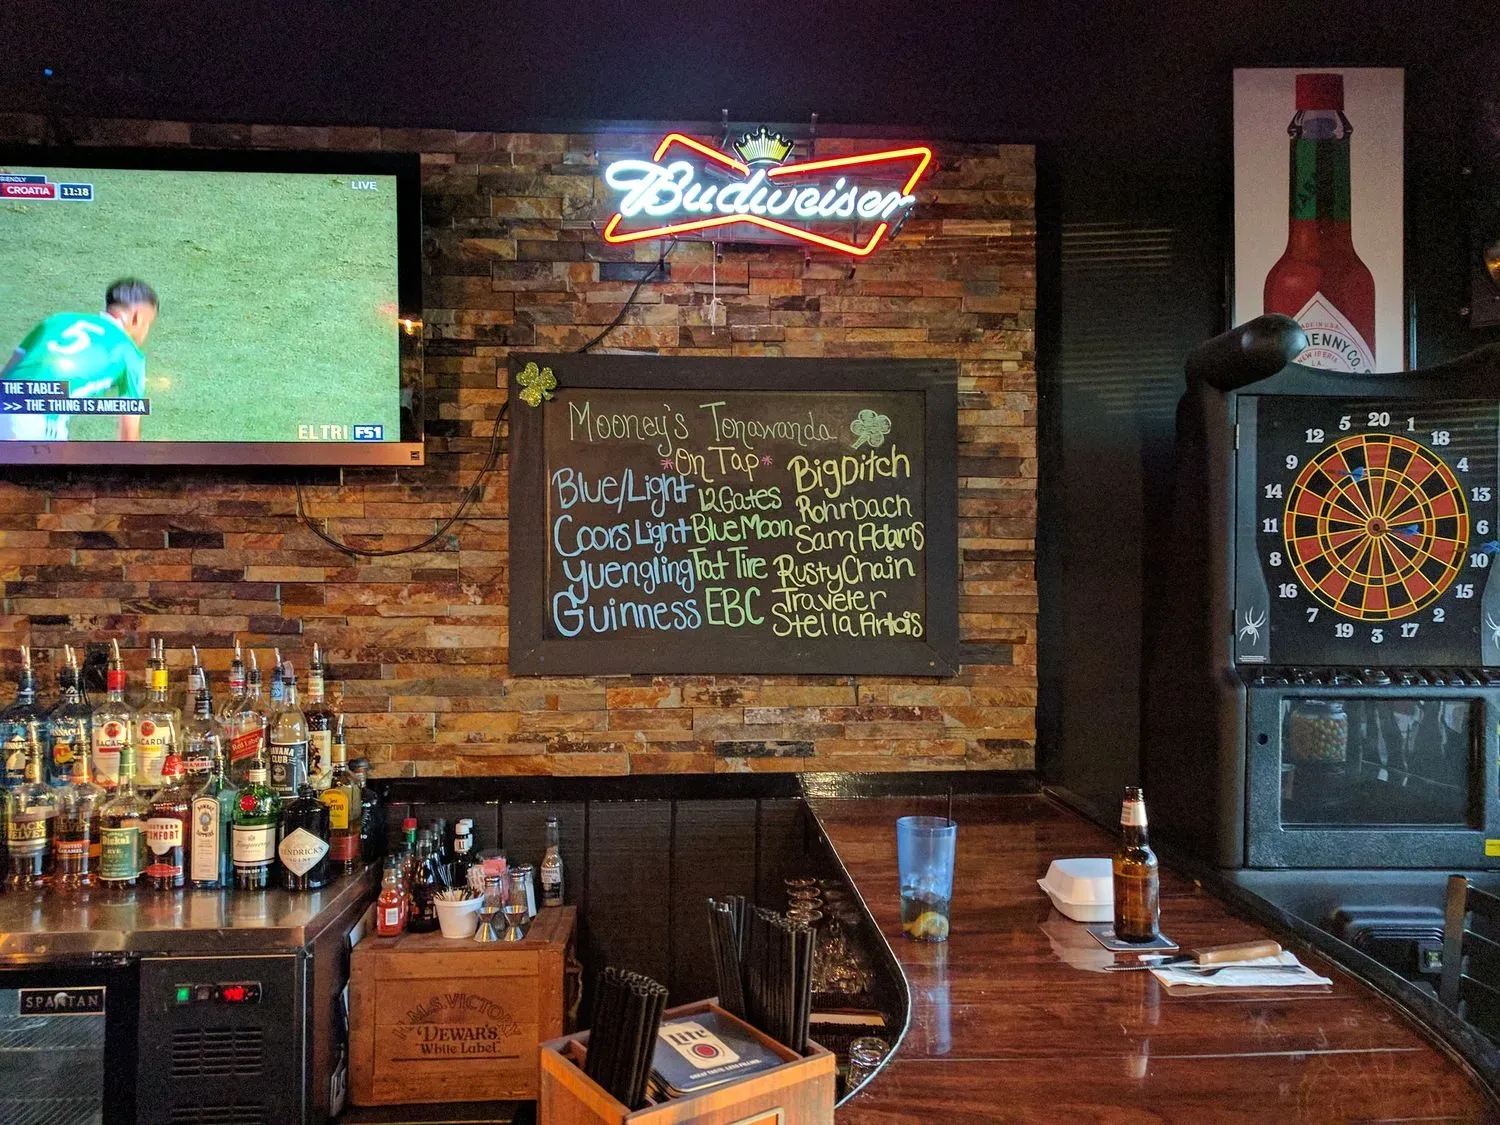 RIENDLY
CROATIA 11:18
LIVE
5
THE TABLE.
>> THE THING IS AMERICA
EL TRI FS1
Budweiser
Mooney's Tonawanda
*On Tap*
Blue/Light
Coors Light
Yuengling
Guinness
12 Gates
Blue Moon
Fat Tire
EBC
Big Ditch
Rohrbach
Sam Adams
Rusty Chain
Traveler
Stella Artois
MADE IN U.S.A.
HENNY CO.
NEW IBERIA
LA.
5 20 1
12 18
9 4
14 13
11 6
8 10
16 15
7 2
19 3 17
BACARDI
HAVANA
CLUB
SOUTHERN
COMFORT
Tanqueray
HENDRICK'S
SPARTAN
H.M.S. VICTORY
DEWAR'S
White Label
Lite
GREAT TASTE. LESS FILLING.